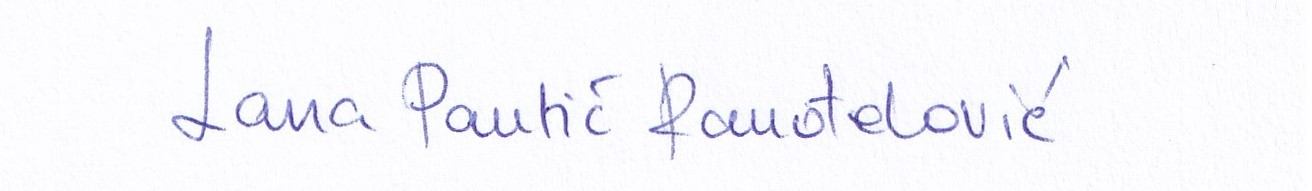 Lana Pantić Ranotelović